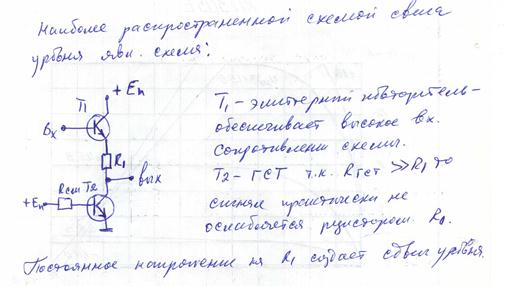 Наиболее распространенной схемой свига
уровня явл. схема:
+ Еп
Т1
Вх
R1
вых
Rсм Т2
+Еп
Т1 - эмиттерный повторитель -
обеспечивает высокое вх.
сопротивление схемы.
Т2 - ГСТ т.к. Rгст >> R1 то
сигнал практически не
ослабляется резистором R1.
Постоянное напряжение на R1 создает сдвиг уровня.